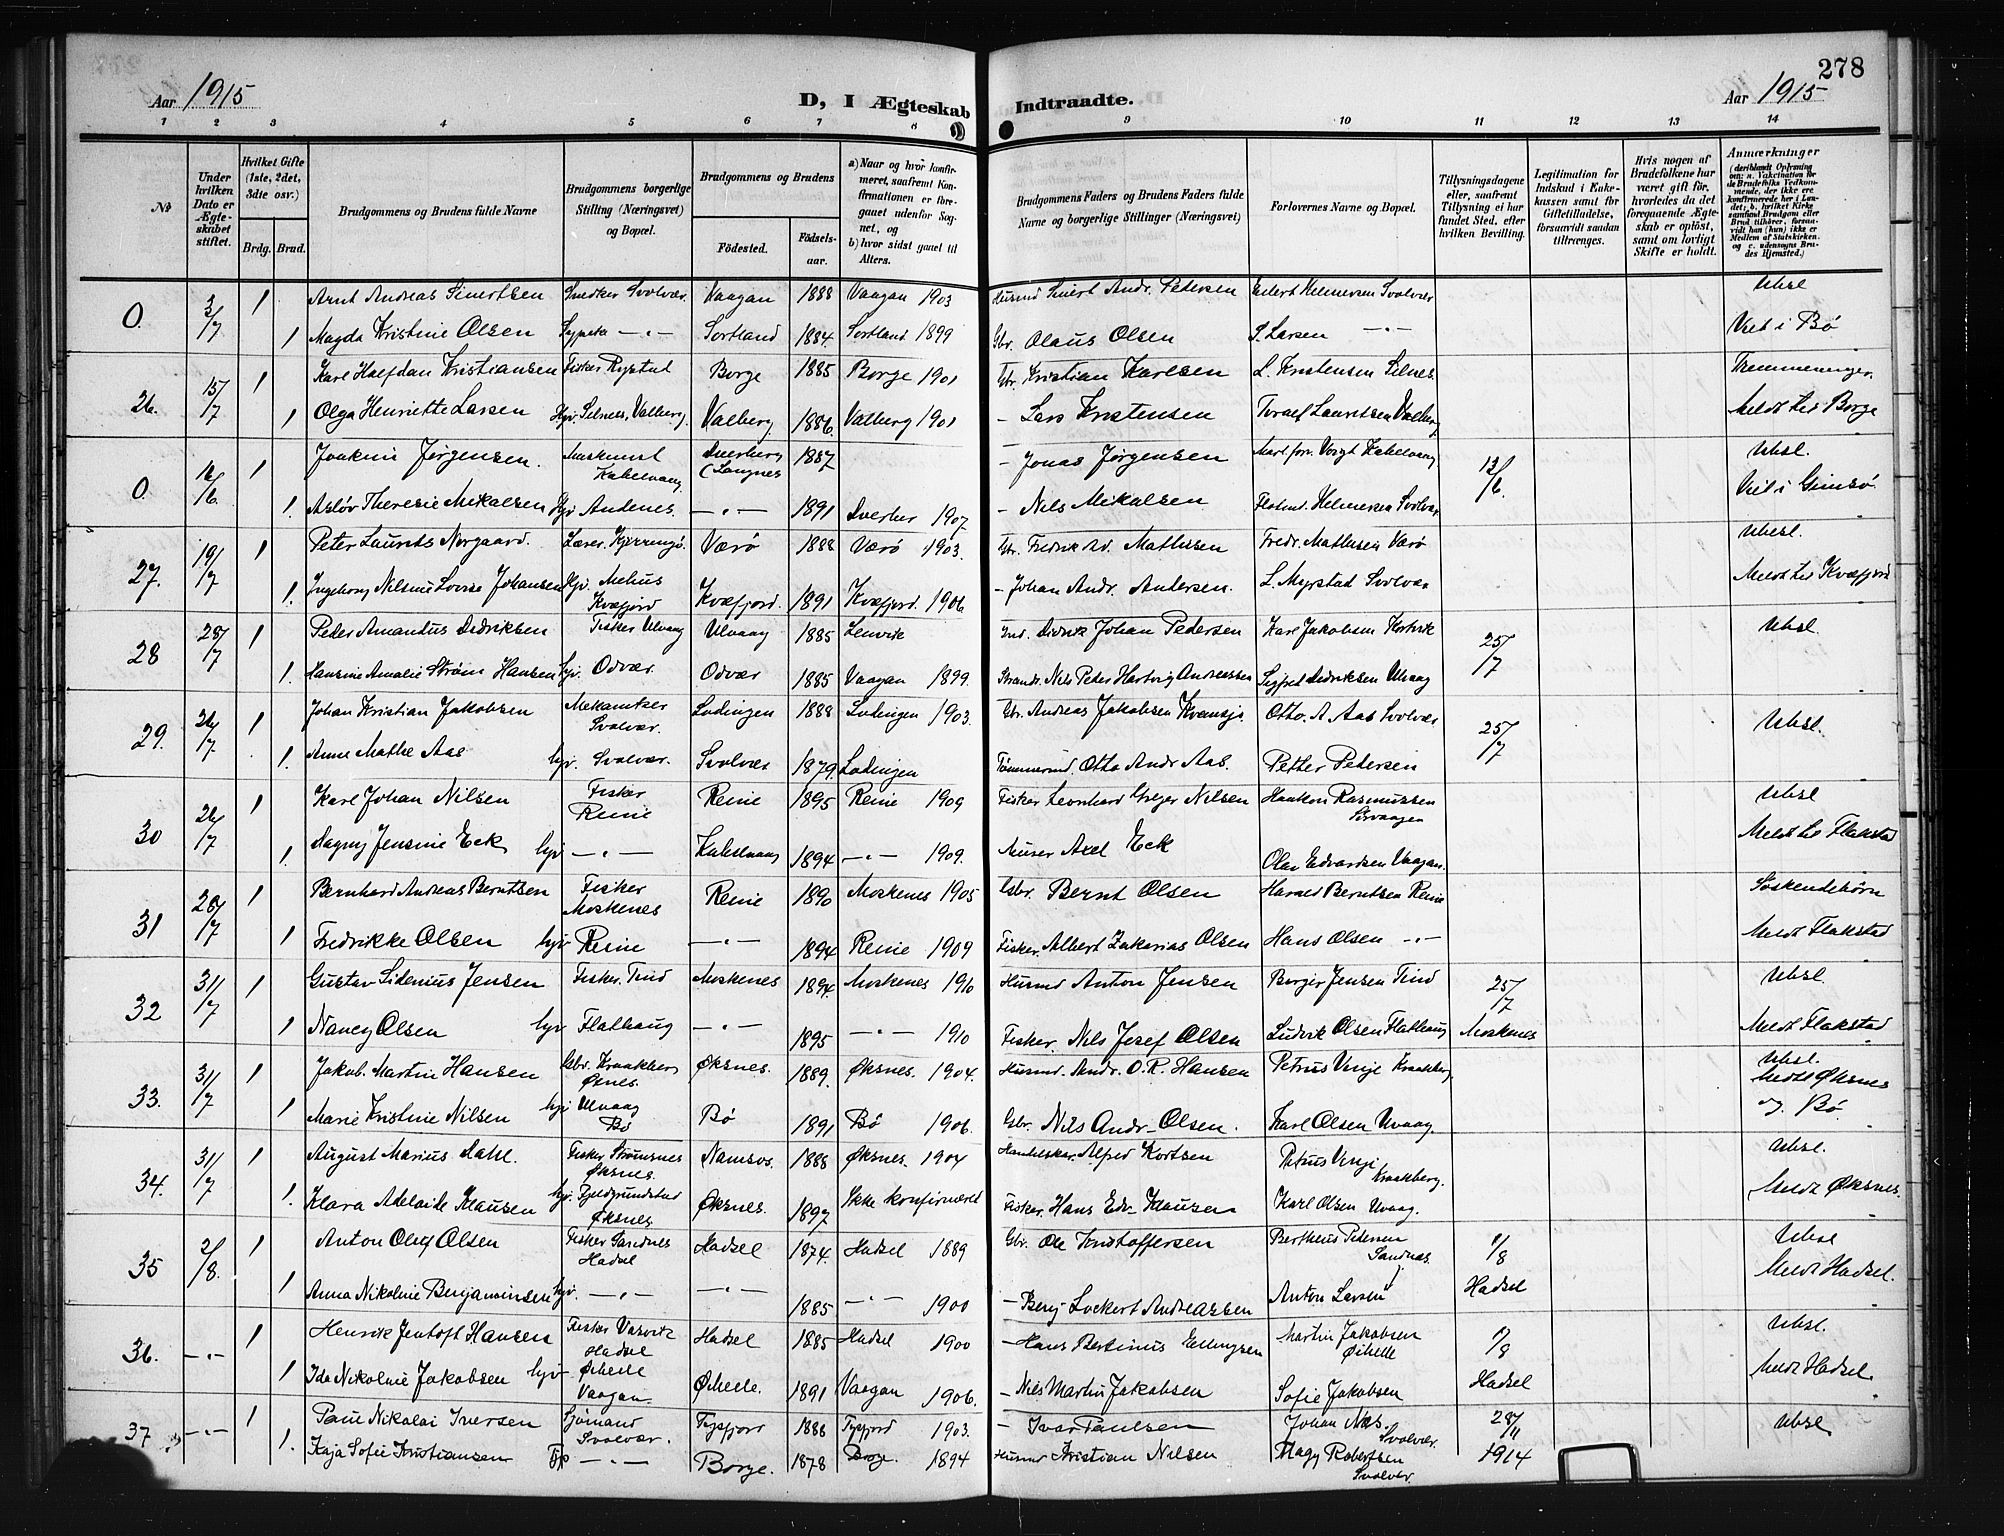 278
Aar 1915
D, I Ægteskab Indtraadte.
Aar 1915
1 2 3 4 5 6 7 8 9 10 11 12 13 14
№
Under hvilken Dato er Ægteskabet stiftet.
Hvilket Gifte (1ste, 2det, 3die osv.)
Brdg. Brud.
Brudgommens og Brudens fulde Navne
Brudgommens borgerlige Stilling (Næringsvei) og Bopæl.
Brudgommens og Brudens
Fødested. Fødselsaar.
a) Naar og hvor konfirmeret, saafremt Konfirmationen er foregaaet udenfor Sognet, og
b) hvor sidst gaaet til Alters.
Brudgommens Faders og Brudens Faders fulde Navne og borgerlige Stillinger (Næringsvei)
Forlovernes Navne og Bopæl.
Tillysningsdagene eller, saafremt Tillysning ei har fundet Sted, efter hvilken Bevilling.
Legitimation for Indskud i Enkekassen samt for Giftetilladelse, forsaavidt saadan tiltrænges.
Hvis nogen af Brudefolkene har været gift før, hvorledes da det foregaaende Ægteskab er opløst, samt om lovligt Skifte er holdt.
Anmærkninger
(deriblandt Oplysning om: a. Vakcination for de Brudefolks Vedkommende, der ikke ere konfirmerede her i Landet; b. hvilket Kirkesamfund Brudgom eller Brud tilhører, forsaavidt han (hun) ikke er Medlem af Statskirken og c. udensogns Brudes Hjemsted.)
0. 3/7 1 Arnt Andreas Sivertsen Snedker Svolvær Vaagan 1888 Vaagan 1903 Husmd Sivert Andr. Pedersen Edert Helmersen Svolvær Ubsl
1 Magda Kristine Olsen Sypike —"— Sortland 1884 Sortland 1899 Gbr. Olaus Olsen P. Larsen —"— Viet i Bø
26. 15/7 1 Karl Halfdan Kristiansen Fisker Rystad Borge 1885 Borge 1901 Gbr. Kristian Karlsen L. Kristensen Silnes. Tremmeninger.
1 Olga Henriette Larsen Hjv. Silnes, Valberg Valberg 1886. Valberg 1901 — Lars Kristensen Toralf Lauritsen Valberg Meldt til Borge
0. 16/6 1 Joakim Jørgensen. Maskinist Kabelvaag Dverberg (Langnes 1887 — Jonas Jørgensen Mart. forv. Voigt Kabelvaag 13/6. Ubsl.
1. Asløv Theresie Mikalsen Hjv Andenes. —"— 1891 Dverber 1907 — Nils Mikalsen Helmersen Svolvær Viet i Gimsø.
27. 19/7 1 Peter Laurits Norgaard. Lærer. Kjerringø. Værø 1888 Værø 1903. Gbr. Fredrik Ad. Mathisen Fredr. Mathisen Værø Ubsl.
1. Ingeborg Nilsine Lovise Johansen Hjv. Melhus Kvæfjord Kvæfjord. 1891 Kvæfjord. 1906 — Johan Andr. Andersen. L. Myrstad Svolvær Meldt til Kvæfjord
28 28/7 1 Peder Amandus Didriksen Fisker Ulvaag Ulvaag 1885 Lenvik Ind. Didrik Johan Pedersen Karl Jakobsen 25/7 Ubsl.
1. Hansine Amalie Strøm Hansen hjv. Odvær Odvær 1885 Vaagan 1899. Strandr. Nils Peter Hartvig Andreassen Sigfret Didriksen Ulvaag
29. 26/7 1 Johan Kristian Jakobsen Mekaniker Svolvær. Lødingen 1888 Lødingen 1903. Gbr. Andreas Jakobsen Otto. A. Aas Svolvær 25/7 Ubsl.
1. Anne Mathe Aas hjv. Svolvær. Svolvær 1879. Lødingen Tømmermd. Otto Andr Aas. Petter Petersen
30 26/7 1 Karl Johan Nilsen Fisker Reine Reine 1895 Reine 1909 Fisker Leonhard Greger Nilsen Haakon Rasmussen Sørvaagen Ubsl
1. Dagny Jensine Eck hjv —"— Kabelvaag 1894 —"— 1909. Murer Axel Eck Olav Edvardsen Vaagan. Meldt til Flakstad
31 28/7 1 Bernhard Andreas Berntsen Fisker Moskenes Reine 1890 Moskenes 1905 Gbr. Bernt Olsen Harald Berntsen Reine Søskendebørn
1 Fredrikke Olsen hjv Reine —"— 1894 Reine 1909 Fisker Albert Zakarias Olsen Hans Olsen —"— Meldt Flakstad
32 31/7 1 Gustav Sidenius Jensen Fisker. Tind Moskenes 1894. Moskenes 1910 Husmd Anton Jensen Borger Jensen Tind 25/7 Ubsl
1 Nancy Olsen hjv Flathaug —"— 1895 —"— 1910 Fisker. Nils Josef Olsen Ludvik Olsen Flathaug Moskenes Meldt Flakstad
33. 31/7 1 Jakob Martin Hansen Gbr. Kraakberg Øknes. Øksnes. 1889. Øksnes. 1904. Husmd. Andr. O. R. Hansen Petrus Vinje Kraakberg Ubsl.
1 Marie Kristine Nilsen hjv Ulvaag Bø Bø 1891 Bø 1906. Gbr. Nils Andr. Olsen. Karl Olsen Uvaag. Meldt Øksnes og Bø
34. 31/7 1 August Marius Dahl. Fisker Strømsnes Øksnes. Namsos. 1888 Øksnes. 1904 Handelskar. Alfred Kortsen Petrus Vinje Kraakberg. Ubsl.
1. Klara Adelaide Klausen hjv. Fjeldgrundstad Øksnes Øksnes. 1897 Ikke konfirmeret Fisker. Hans Edv. Klausen Karl Olsen Uvaag. Meldt Øksnes.
35 2/8. 1 Anton Oluf Olsen Fisker Sandnes Hadsel Hadsel 1874 Hadsel 1889 Gbr. Ole Kristoffersen Bertheus Petersen Sandnæs. 1/8 Ubsl
1 Anna Nikoline Benjaminsen hjv. —"— —"— 1885 —"— 1900 — Benj. Lockert Andreassen Anton Larsen Hadsel Meldt Hadsel.
36. —"— 1 Henrik Jentoft Hansen Fisker Hadsel Hadsel 1885 Hadsel 1900 — Hans Bertinus Ellingsen Martin Jakobsen Øihelle 1/8 Ubsl.
1 Ida Nikoline Jakobsen hjv Øihelle Vaagan Øihelle. 1891 Vaagan 1906. — Nils Martin Jakobsen Sofie Jakobsen Hadsel Meldt Hadsel.
37 —"— 1 Paul Nikolai Iversen Sjømand Svolvær. Tysfjord 1888 Tysfjord 1903. — Ivar Paulsen Johan Næs. Svolvær. 28/11 Ubsl
1. Kaja Sofie Kristiansen Tjp —"— Borge. 1878 Borge. 1894 Husmd Kristian Nilsen Magy Robertsen Svolvær. 1914